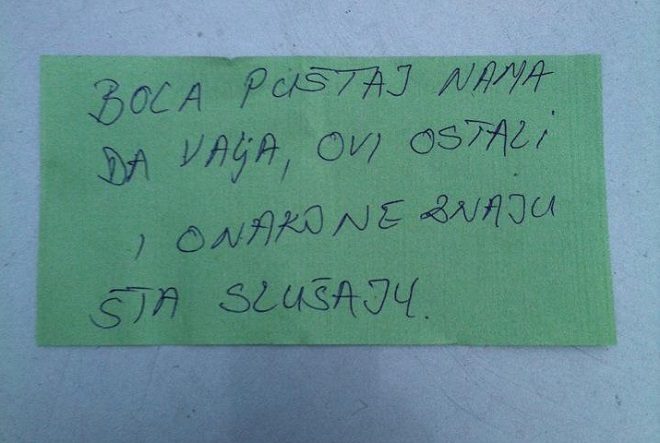 BOCA PUŠTAJ NAMA
DA VALJA, OVI OSTALI
I ONAKO NE ZNAJU
ŠTA SLUŠAJU.